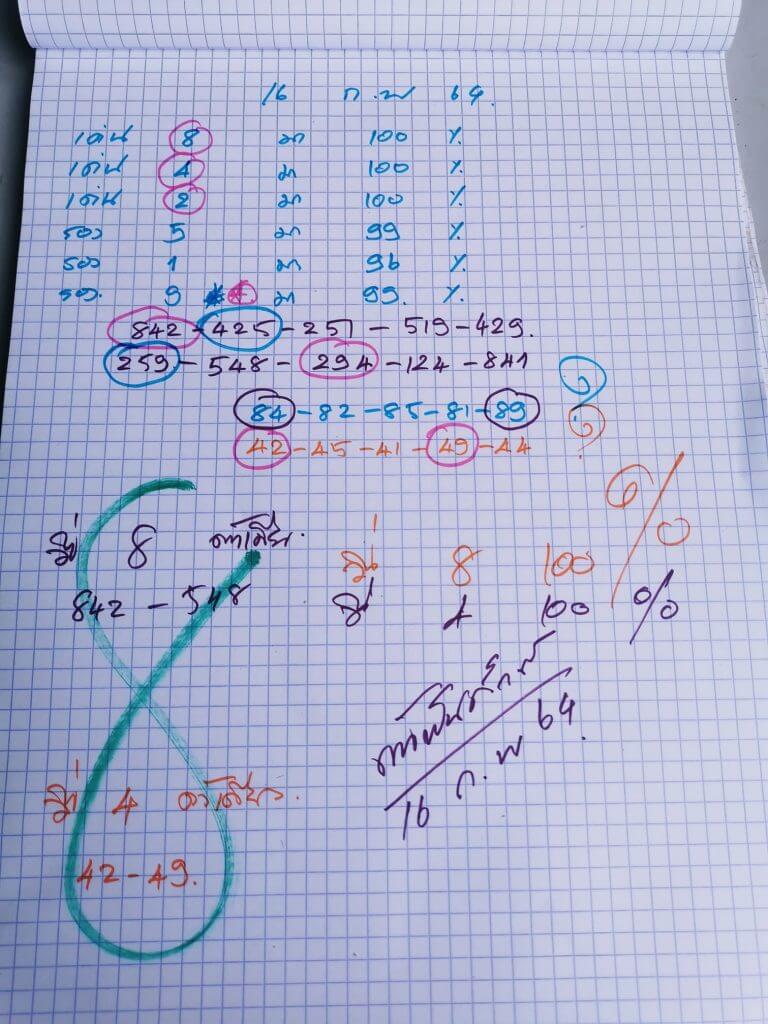 16 ก.พ 64.
เด่น 8 มา 100 %
เด่น 4 มา 100 %
เด่น 2 มา 100 %
รอง 5 มา 99 %
รอง 1 มา 96 %
รอง. 9 มา 99. %
842 - 425 - 251 - 519 - 429.
259 - 548 - 294 - 124 - 841
84 - 82 - 85 - 81 - 89
42 - 45 - 41 - 49 - 44
วิ่ง 8 ตัวเดียว.
842 - 548
วิ่ง 8 100 %
วิ่ง 4 100 %
16 ก.พ 64.
วิ่ง 4 ตัวเดียว.
42 - 49.